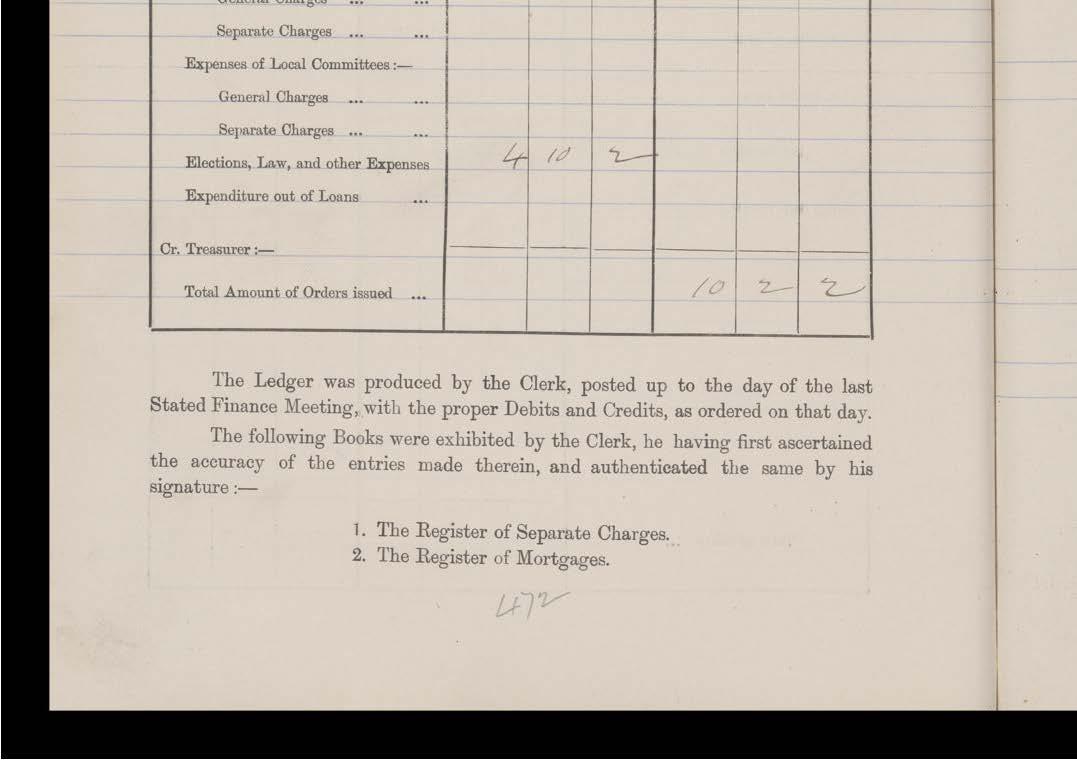 General Charges ... ...
Separate Charges ... ...
Expenses of Local Committees:—
General Charges ... ...
Separate Charges ... ...
Elections, Law, and other Expenses 4 10 2
Expenditure out of Loans ...
Cr. Treasurer:—
Total Amount of Orders issued ... 10 2 2
The Ledger was produced by the Clerk, posted up to the day of the last
Stated Finance Meeting, with the proper Debits and Credits, as ordered on that day.
The following Books were exhibited by the Clerk, he having first ascertained
the accuracy of the entries made therein, and authenticated the same by his
signature:—
1. The Register of Separate Charges.
2. The Register of Mortgages.
472